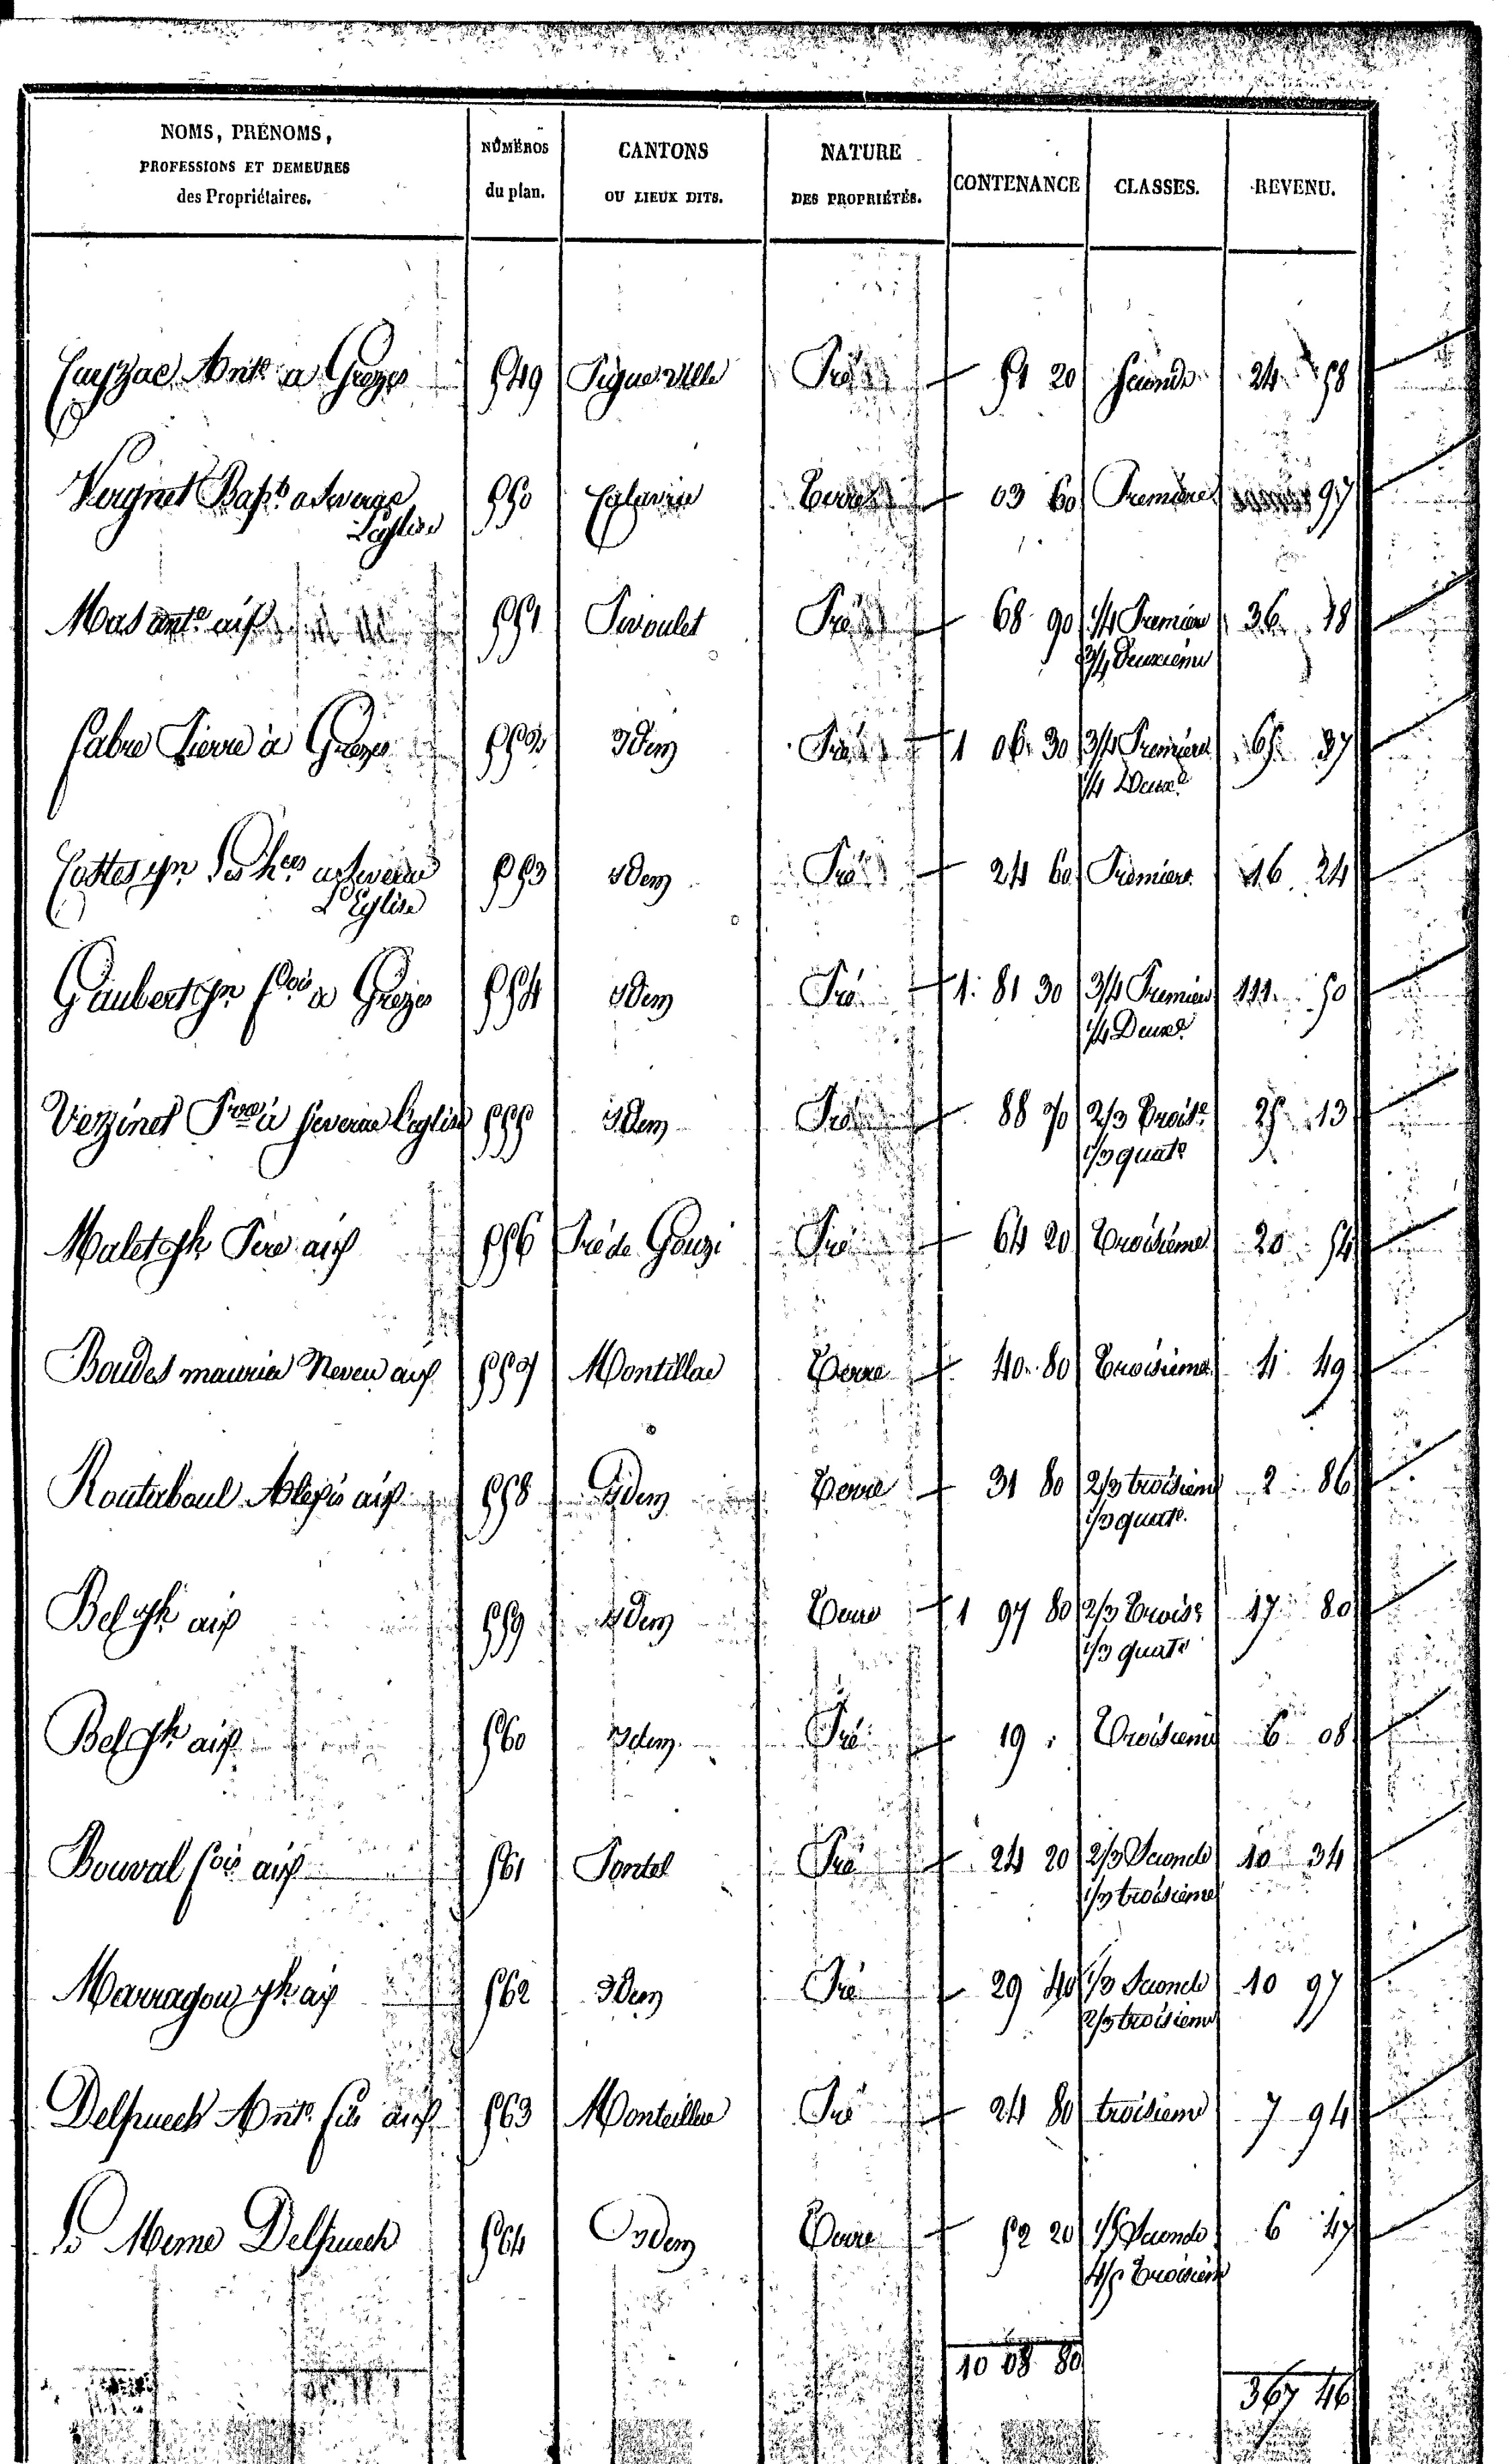 NOMS, PRÉNOMS, PROFESSIONS ET DEMEURES des Propriétaires.
NUMÉROS du plan.
CANTONS OU LIEUX DITS.
NATURE DES PROPRIÉTÉS.
CONTENANCE
CLASSES.
REVENU.
Cayzac Ante a Grezes 549 Pigueville Pré 51 20 Seconde 24 58
Verginet Bapte a Severac 550 Terre 03 60 Premiere 97
L'Eglise
Mas ante aif 551 Pivoulet Pré 68 90 1/4 Premiere 36 18
3/4 Deuxieme
Fabre Pierre à Grezes 552 Idem Pré 1 06 30 3/4 Premiere 65 37
1/4 Deuxe
Cottes Jn Ses hers a Severac 553 Idem Pré 24 60 Premiere 16 24
L'Eglise
Gaubert Jn fois a Grezes 554 Idem Pré 1 81 30 3/4 Premiere 111 50
1/4 Deuxe
Verzinet à Severac l'eglise 555 Idem Pré 88 70 2/3 Troise 25 13
1/3 quate
Malet Jh Père aif 556 Pré de Gouzi Pré 64 20 Troisieme 20 54
Boudet maurice Neveu aif 557 Montillac Terre 40 80 Troisieme 4 49
Routaboul Alexis aif 558 Idem Terre 31 80 2/3 troisieme 2 86
1/3 quate
Bel Jh aif 559 Idem Terre 1 97 80 2/3 Troise 17 80
1/3 quate
Bel Jh aif 560 Idem Pré 19 Troisieme 6 08
Bouval fois aif 561 Pontel Pré 24 20 2/3 Seconde 10 34
1/3 troisieme
Marragou Jh aif 562 Idem Pré 29 40 1/3 Seconde 10 97
2/3 troisieme
Delpuech Ante fils aif 563 Monteillac Pré 24 80 troisieme 7 94
Le Meme Delpuech 564 Idem Terre 52 20 1/5 Seconde 6 47
4/5 Troisieme
10 08 80
367 46